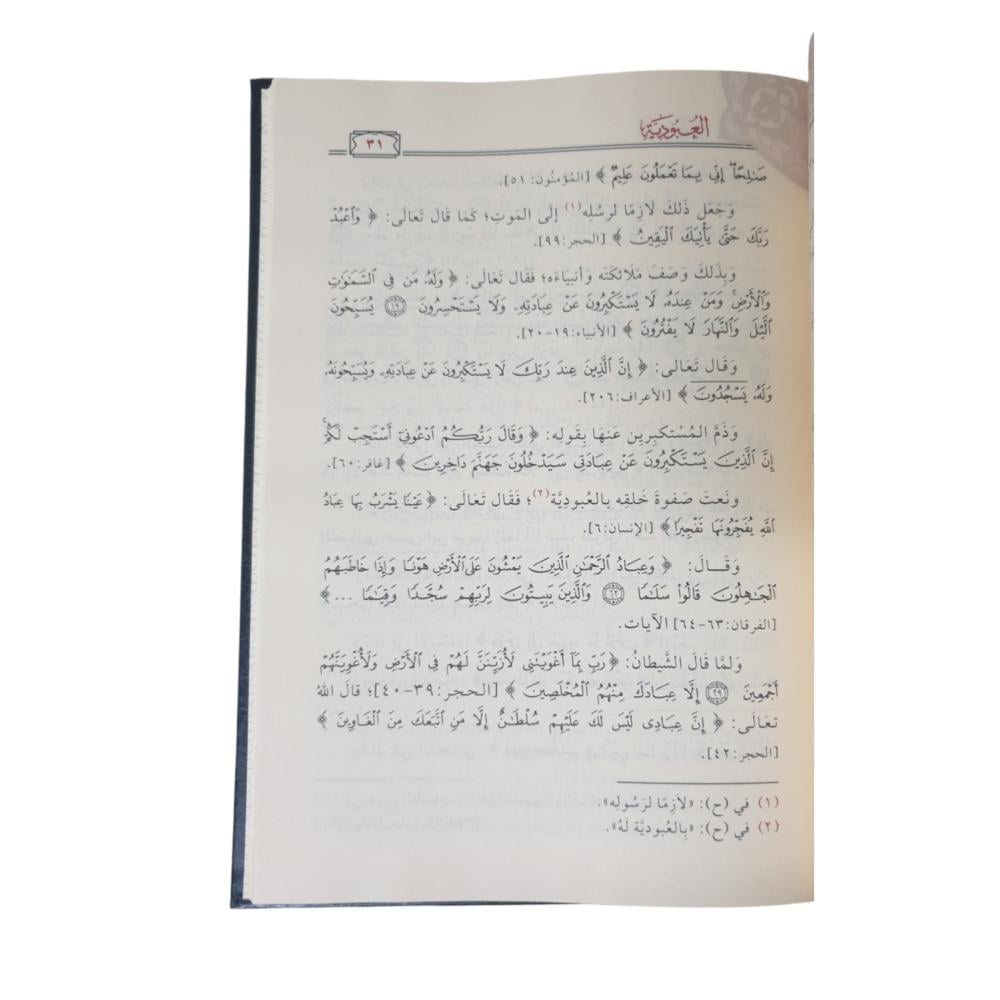 العُبُودِيَّة
٣١
صَـٰلِحًاۖ إِنِّى بِمَا تَعْمَلُونَ عَلِيمٌ ﴾ [المُؤمنُون: ٥١].
وَجَعَل ذَلكَ لَازِمًا لرسُلِه(١) إِلَى المَوتِ؛ كَمَا قَالَ تَعَالَى: ﴿ وَٱعْبُدْ
رَبَّكَ حَتَّىٰ يَأْتِيَكَ ٱلْيَقِينُ ﴾ [الحجر:٩٩].
وَبِذَلكَ وَصَفَ مَلَائكَتَه وَأنبيَاءَه؛ فقَال تَعَالَى: ﴿ وَلَهُۥ مَن فِى ٱلسَّمَـٰوَٰتِ
وَٱلْأَرْضِۚ وَمَنْ عِندَهُۥ لَا يَسْتَكْبِرُونَ عَنْ عِبَادَتِهِۦ وَلَا يَسْتَحْسِرُونَ ۝١٩ يُسَبِّحُونَ
ٱلَّيْلَ وَٱلنَّهَارَ لَا يَفْتُرُونَ ﴾ [الأنبياء:١٩-٢٠].
وَقَال تَعَالى: ﴿ إِنَّ ٱلَّذِينَ عِندَ رَبِّكَ لَا يَسْتَكْبِرُونَ عَنْ عِبَادَتِهِۦ وَيُسَبِّحُونَهُۥ
وَلَهُۥ يَسْجُدُونَ ﴾ [الأعراف:٢٠٦].
وَذَمَّ المُسْتكبِرِين عَنهَا بِقَولِه: ﴿ وَقَالَ رَبُّكُمُ ٱدْعُونِىٓ أَسْتَجِبْ لَكُمْۚ
إِنَّ ٱلَّذِينَ يَسْتَكْبِرُونَ عَنْ عِبَادَتِى سَيَدْخُلُونَ جَهَنَّمَ دَاخِرِينَ ﴾ [غافر:٦٠].
ونَعتَ صَفوةَ خَلقِه بالعُبوديَّة(٢)؛ فقَال تَعَالَى: ﴿ عَيْنًا يَشْرَبُ بِهَا عِبَادُ
ٱللَّهِ يُفَجِّرُونَهَا تَفْجِيرًا ﴾ [الإنسان:٦].
وَقَـالَ: ﴿ وَعِبَادُ ٱلرَّحْمَـٰنِ ٱلَّذِينَ يَمْشُونَ عَلَى ٱلْأَرْضِ هَوْنًا وَإِذَا خَاطَبَهُمُ
ٱلْجَـٰهِلُونَ قَالُوا۟ سَلَـٰمًا ۝٦٣ وَٱلَّذِينَ يَبِيتُونَ لِرَبِّهِمْ سُجَّدًا وَقِيَـٰمًا ... ﴾
[الفرقان:٦٣-٦٤] الآيات.
وَلمَّا قَالَ الشَّيطانُ: ﴿ رَبِّ بِمَآ أَغْوَيْتَنِى لَأُزَيِّنَنَّ لَهُمْ فِى ٱلْأَرْضِ وَلَأُغْوِيَنَّهُمْ
أَجْمَعِينَ ۝٣٩ إِلَّا عِبَادَكَ مِنْهُمُ ٱلْمُخْلَصِينَ ﴾ [الحجر:٣٩-٤٠]؛ قالَ اللهُ
تعَالَى: ﴿ إِنَّ عِبَادِى لَيْسَ لَكَ عَلَيْهِمْ سُلْطَـٰنٌ إِلَّا مَنِ ٱتَّبَعَكَ مِنَ ٱلْغَاوِينَ ﴾
[الحجر:٤٢].
(١) في (ح): «لَازِمًا لرَسُولِه».
(٢) في (ح): «بِالعُبودِيَّة لَهُ».